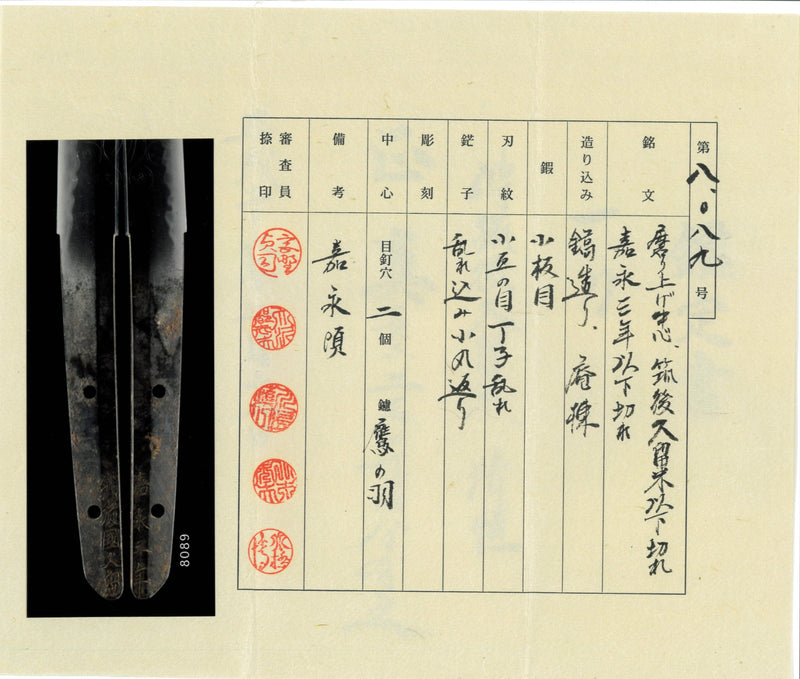 第
八〇八九
号
銘文
磨り上げ中心、筑後久留米以下切れ
嘉永三年以下切れ
造り込み
鎬造り、庵棟
鍛
小板目
刃紋
小互の目丁子乱れ
鋩子
乱れ込み小丸返り
彫刻
中心
目釘穴 二個 鑢 鷹の羽
備考
嘉永頃
審査員
捺印
8089